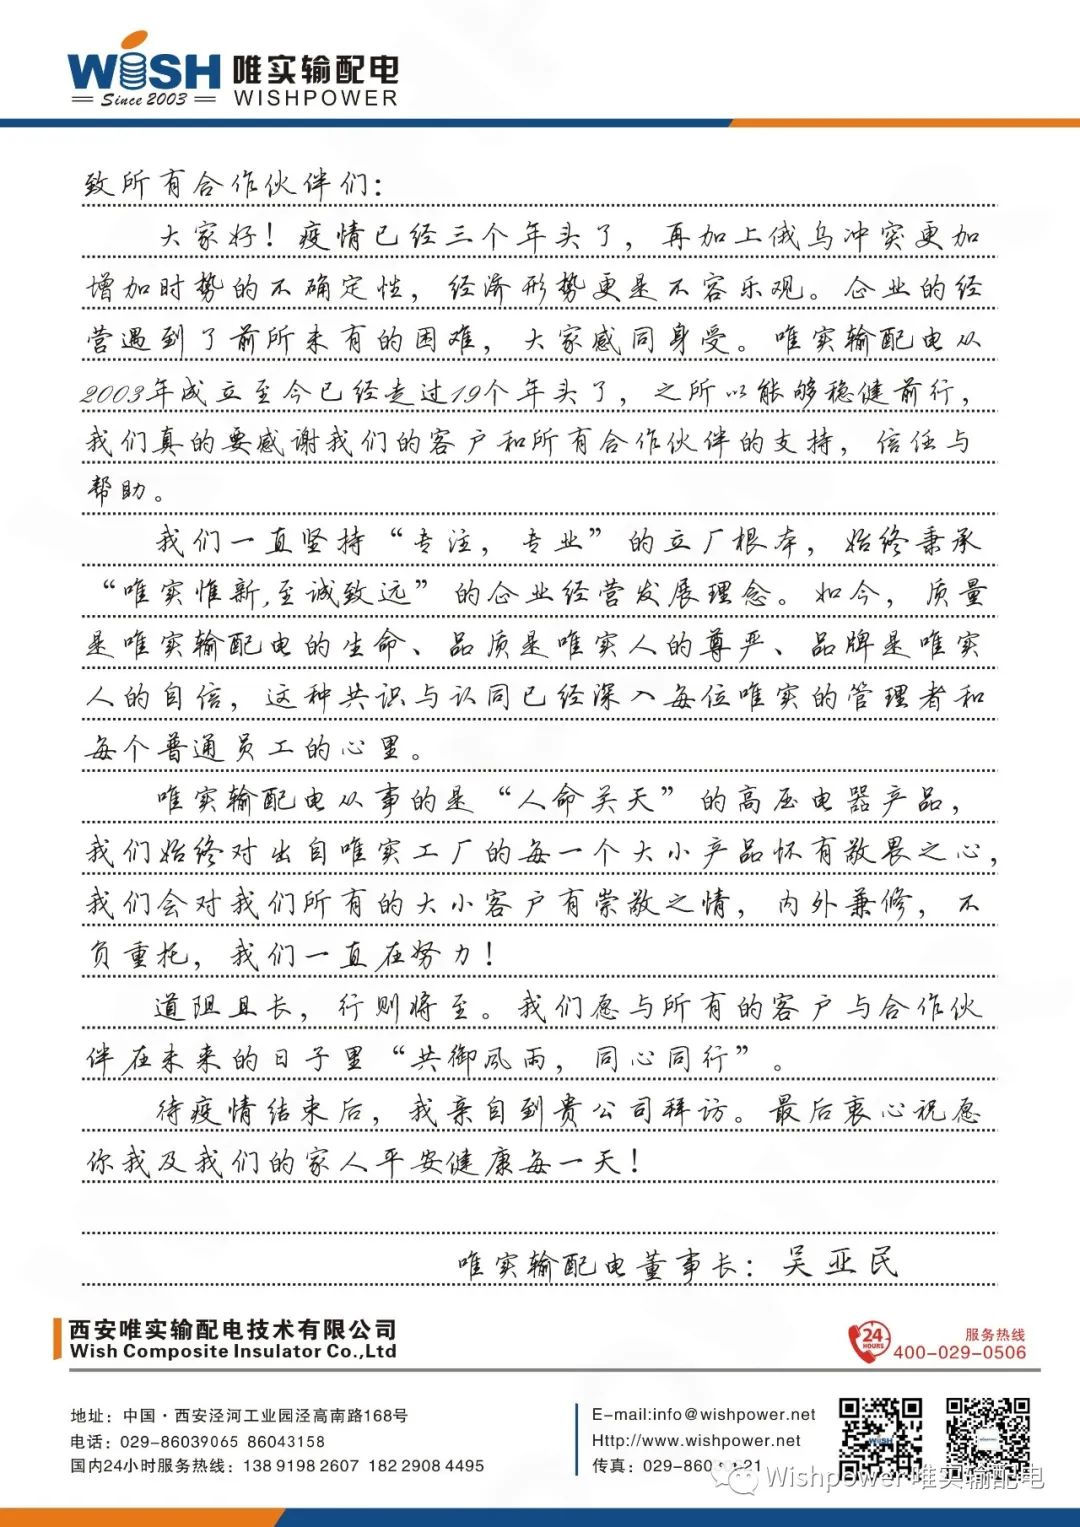 WISH 唯实输配电
Since 2003 WISHPOWER
致所有合作伙伴们：
大家好！疫情已经三个年头了，再加上俄乌冲突更加
增加时势的不确定性，经济形势更是不容乐观。企业的经
营遇到了前所未有的困难，大家感同身受。唯实输配电从
2003年成立至今已经走过19个年头了，之所以能够稳健前行，
我们真的要感谢我们的客户和所有合作伙伴的支持，信任与
帮助。
我们一直坚持“专注，专业”的立厂根本，始终秉承
“唯实惟新,至诚致远”的企业经营发展理念。如今，质量
是唯实输配电的生命、品质是唯实人的尊严、品牌是唯实
人的自信，这种共识与认同已经深入每位唯实的管理者和
每个普通员工的心里。
唯实输配电从事的是“人命关天”的高压电器产品，
我们始终对出自唯实工厂的每一个大小产品怀有敬畏之心，
我们会对我们所有的大小客户有崇敬之情，内外兼修，不
负重托，我们一直在努力！
道阻且长，行则将至。我们愿与所有的客户与合作伙
伴在未来的日子里“共御风雨，同心同行”。
待疫情结束后，我亲自到贵公司拜访。最后衷心祝愿
你我及我们的家人平安健康每一天！
唯实输配电董事长：吴亚民
西安唯实输配电技术有限公司
Wish Composite Insulator Co.,Ltd
24 HOURS
服务热线
400-029-0506
地址：中国·西安泾河工业园泾高南路168号
电话：029-86039065 86043158
国内24小时服务热线：138 9198 2607 182 2908 4495
E-mail:info@wishpower.net
Http://www.wishpower.net
传真：029-860
21
WiSH
Wishpower唯实输配电